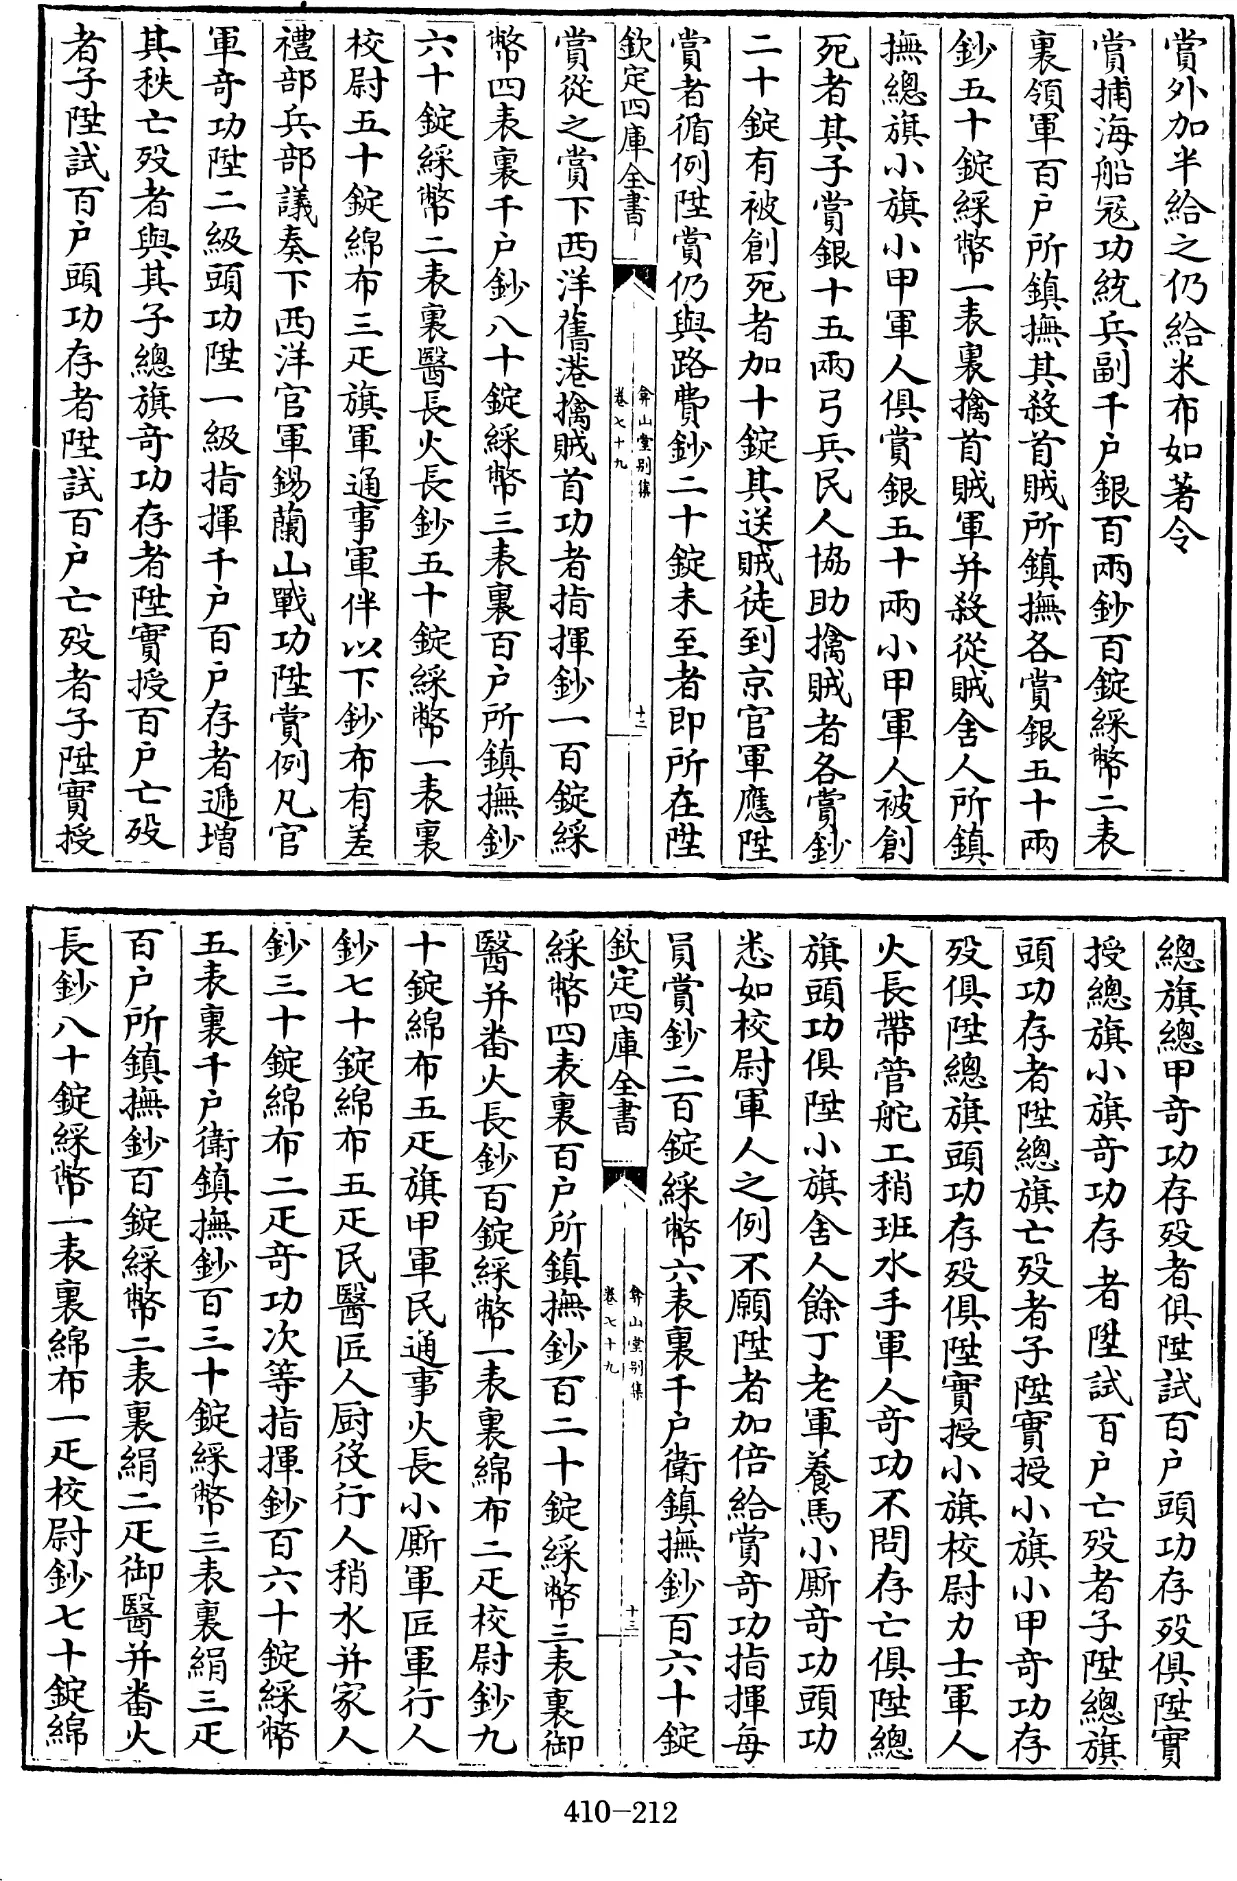 賞外加半給之仍給米布如著令
賞捕海船寇功統兵副千户銀百兩鈔百錠綵幣二表
裏領軍百户所鎮撫其殺首賊所鎮撫各賞銀五十兩
鈔五十錠綵幣一表裏擒首賊軍并殺從賊舍人所鎮
撫總旗小旗小甲軍人俱賞銀五十兩小甲軍人被創
死者其子賞銀十五兩弓兵民人協助擒賊者各賞鈔
二十錠有被創死者加十錠其送賊徒到京官軍應陞
賞者循例陞賞仍與路費鈔二十錠未至者即所在陞
欽定四庫全書
弇山堂别集
卷七十九
十二
賞從之賞下西洋舊港擒賊首功者指揮鈔一百錠綵
幣四表裏千户鈔八十錠綵幣三表裏百户所鎮撫鈔
六十錠綵幣二表裏醫長火長鈔五十錠綵幣一表裏
校尉五十錠綿布三疋旗軍通事軍伴以下鈔布有差
禮部兵部議奏下西洋官軍錫蘭山戰功陞賞例凡官
軍竒功陞二級頭功陞一級指揮千户百户存者遞增
其秩亡殁者與其子總旗竒功存者陞實授百户亡殁
者子陞試百户頭功存者陞試百户亡殁者子陞實授
總旗總甲竒功存殁者俱陞試百户頭功存殁俱陞實
授總旗小旗竒功存者陞試百户亡殁者子陞總旗
頭功存者陞總旗亡殁者子陞實授小旗小甲竒功存
殁俱陞總旗頭功存殁俱陞實授小旗校尉力士軍人
火長帶管舵工稍班水手軍人竒功不問存亡俱陞總
旗頭功俱陞小旗舍人餘丁老軍養馬小厮竒功頭功
悉如校尉軍人之例不願陞者加倍給賞竒功指揮每
員賞鈔二百錠綵幣六表裏千户衛鎮撫鈔百六十錠
欽定四庫全書
弇山堂别集
卷七十九
十三
綵幣四表裏百户所鎮撫鈔百二十錠綵幣三表裏御
醫并番火長鈔百錠綵幣一表裏綿布二疋校尉鈔九
十錠綿布五疋旗甲軍民通事火長小厮軍匠軍行人
鈔七十錠綿布五疋民醫匠人厨役行人稍水并家人
鈔三十錠綿布二疋竒功次等指揮鈔百六十錠綵幣
五表裏千户衛鎮撫鈔百三十錠綵幣三表裏絹三疋
百户所鎮撫鈔百錠綵幣二表裏絹二疋御醫并番火
長鈔八十錠綵幣一表裏綿布一疋校尉鈔七十錠綿
410-212